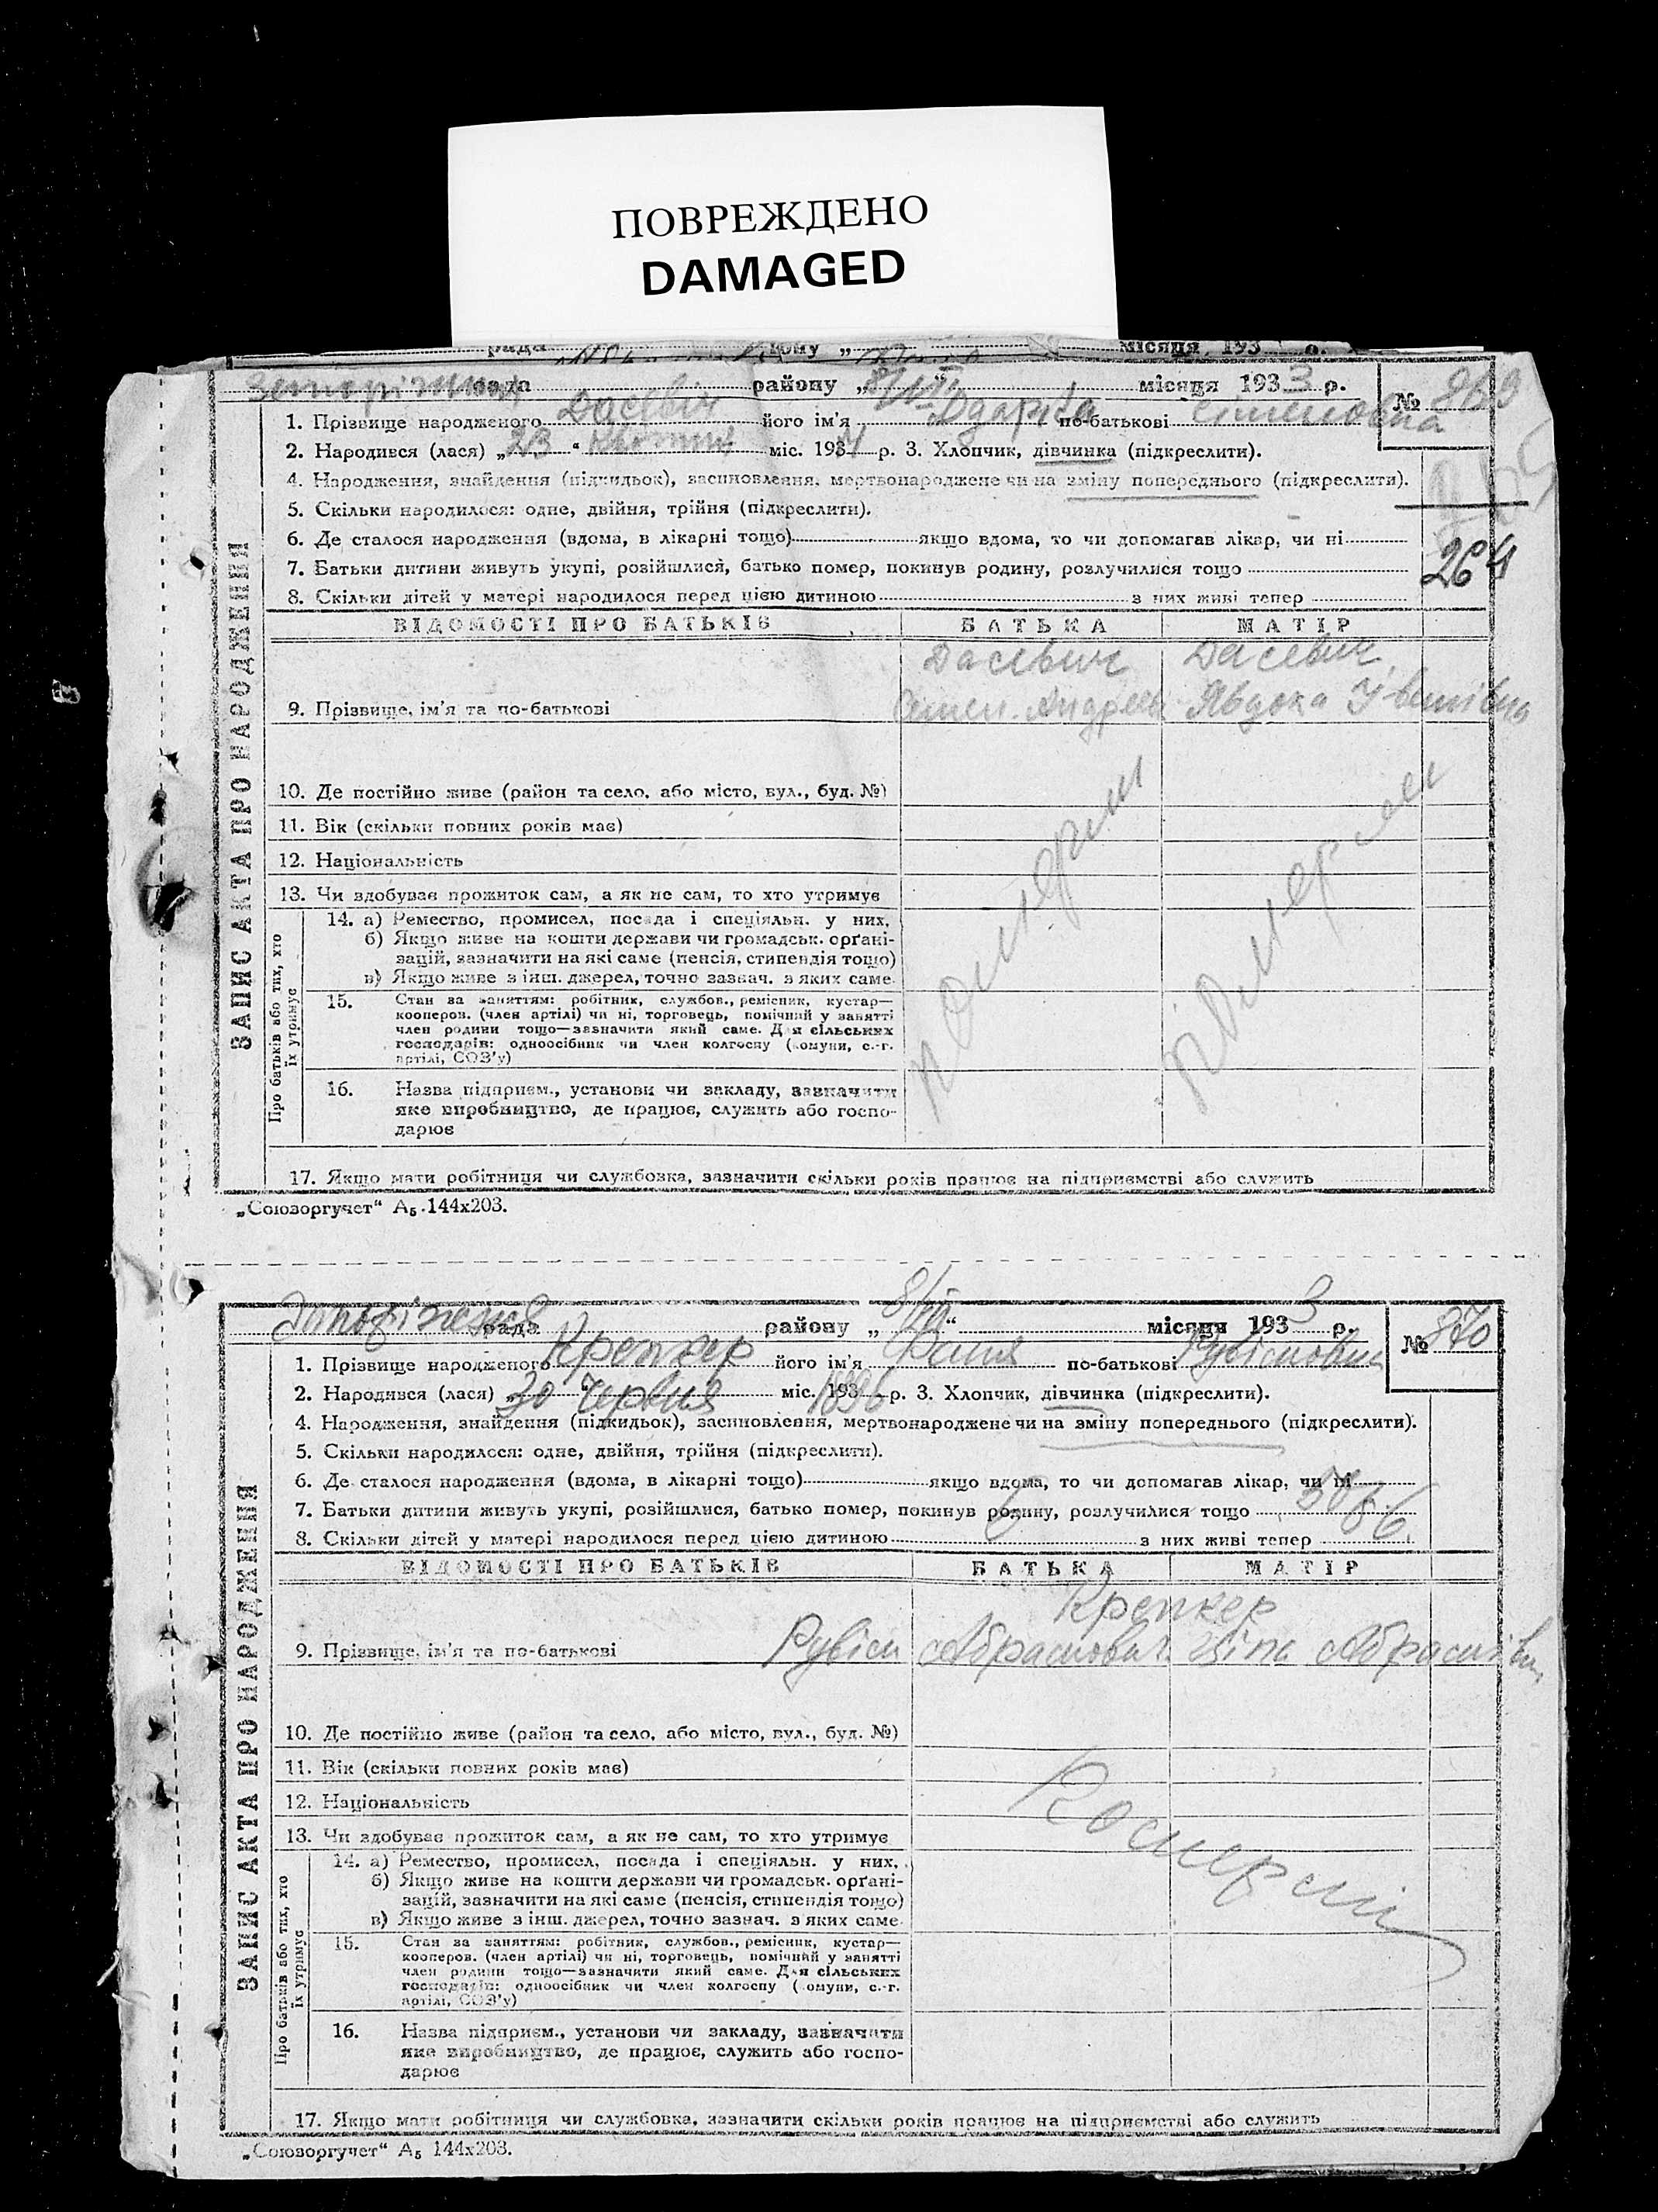 ПОВРЕЖДЕНО
DAMAGED
рада району „ “ місяця 1933 р. № 869
1. Прізвище народженого Дасевич його ім'я по-батькові
2. Народився (лася) „23“ міс. 193 р. 3. Хлопчик, дівчинка (підкреслити).
4. Народження, знайдення (підкидьок), засиновлення, мертвонароджене чи на зміну попереднього (підкреслити).
5. Скільки народилося: одне, двійня, трійня (підкреслити).
6. Де сталося народження (вдома, в лікарні тощо) якщо вдома, то чи допомагав лікар, чи ні
7. Батьки дитини живуть укупі, розійшлися, батько помер, покинув родину, розлучилися тощо
264
8. Скільки дітей у матері народилося перед цією дитиною з них живі тепер
ВІДОМОСТІ ПРО БАТЬКІВ БАТЬКА МАТІР
Дасевич Дасевич
9. Прізвище, ім'я та по-батькові Явдоха
10. Де постійно живе (район та село, або місто, вул., буд. №)
11. Вік (скільки повних років має)
12. Національність
13. Чи здобуває прожиток сам, а як не сам, то хто утримує
14. а) Ремество, промисел, посада і спеціяльн. у них.
б) Якщо живе на кошти держави чи громадськ. орґані-
зацій, зазначити на які саме (пенсія, стипендія тощо)
в) Якщо живе з інш. джерел, точно зазнач. з яких саме.
15. Стан за заняттям: робітник, службов., ремісник, кустар—
кооперов. (член артілі) чи ні, торговець, помічний у занятті
член родини тощо—зазначити який саме. Для сільських
господарів: одноосібник чи член колгоспу (комуни, с.-г.
артілі, СОЗ'у)
16. Назва підприєм., установи чи закладу, зазначити
яке виробництво, де працює, служить або госпо-
дарює
17. Якщо мати робітниця чи службовка, зазначити скільки років працює на підприємстві або служить
ЗАПИС АКТА ПРО НАРОДЖЕННЯ
Про батьків або тих, хто
їх утримує
„Союзоргучет“ А₅ 144х203.
рада району „ “ місяця 1933 р. № 870
1. Прізвище народженого Крепкер його ім'я Фаня по-батькові
2. Народився (лася) „30 Червня міс. 1896 р. 3. Хлопчик, дівчинка (підкреслити).
4. Народження, знайдення (підкидьок), засиновлення, мертвонароджене чи на зміну попереднього (підкреслити).
5. Скільки народилося: одне, двійня, трійня (підкреслити).
6. Де сталося народження (вдома, в лікарні тощо) якщо вдома, то чи допомагав лікар, чи ні
7. Батьки дитини живуть укупі, розійшлися, батько помер, покинув родину, розлучилися тощо
8. Скільки дітей у матері народилося перед цією дитиною 6 з них живі тепер 6.
ВІДОМОСТІ ПРО БАТЬКІВ БАТЬКА МАТІР
Крепкер
9. Прізвище, ім'я та по-батькові Рувім Абрамович Ціпа Абрамівна
10. Де постійно живе (район та село, або місто, вул., буд. №)
11. Вік (скільки повних років має)
12. Національність
13. Чи здобуває прожиток сам, а як не сам, то хто утримує
14. а) Ремество, промисел, посада і спеціяльн. у них.
б) Якщо живе на кошти держави чи громадськ. орґані-
зацій, зазначити на які саме (пенсія, стипендія тощо)
в) Якщо живе з інш. джерел, точно зазнач. з яких саме.
15. Стан за заняттям: робітник, службов., ремісник, кустар—
кооперов. (член артілі) чи ні, торговець, помічний у занятті
член родини тощо—зазначити який саме. Для сільських
господарів: одноосібник чи член колгоспу (комуни, с.-г.
артілі, СОЗ'у)
16. Назва підприєм., установи чи закладу, зазначити
яке виробництво, де працює, служить або госпо-
дарює
17. Якщо мати робітниця чи службовка, зазначити скільки років працює на підприємстві або служить
ЗАПИС АКТА ПРО НАРОДЖЕННЯ
Про батьків або тих, хто
їх утримує
„Союзоргучет“ А₅ 144х203.